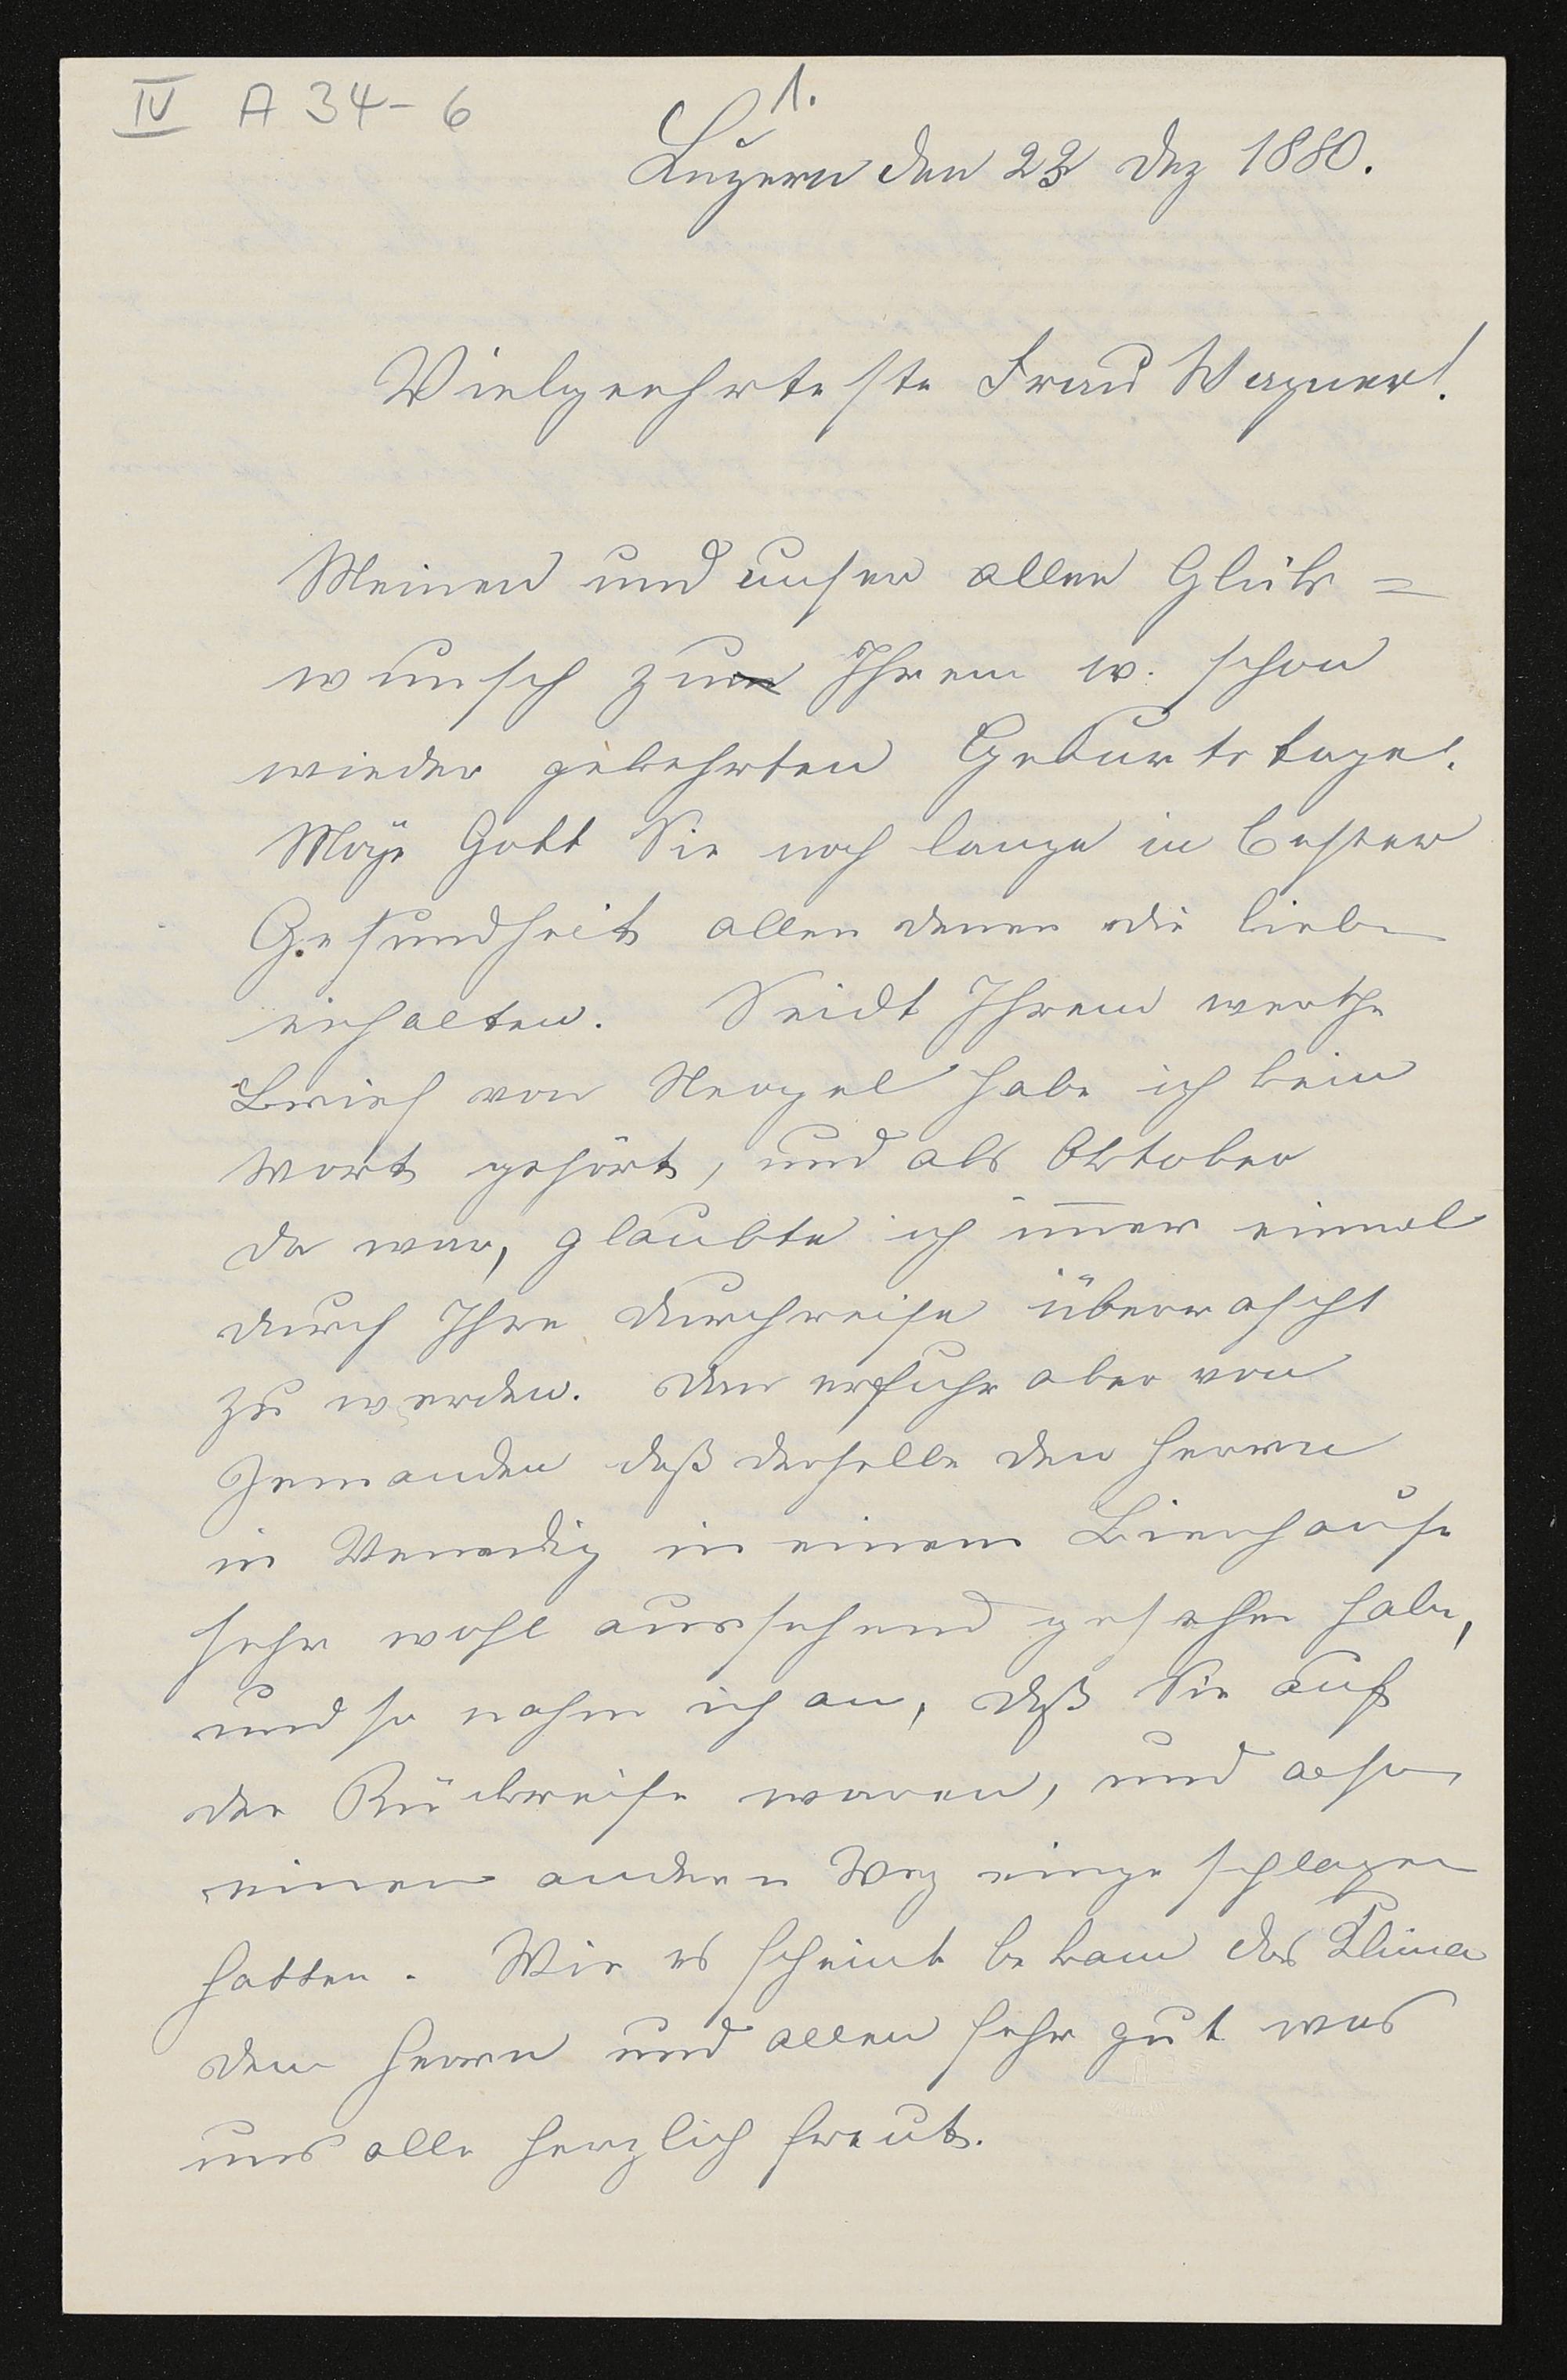 IV A 34-6
1.
Luzern den 22 Dez 1880.
Vielgeehrteste Frau Wagner!
Meinen und unser aller Glük=
wunsch zu Ihrem w. schon
wieder gekehrten Geburtstage!
Möge Gott Sie noch lange in bester
Gesundheit allen denen die lieben
erhalten. Seidt Ihrem werthe
Brief von Neapel habe ich kein
Wort gehört, und als Oktober
da war, glaubte ich im̅er einmal
durch Ihre Durchreise überrascht
zu werden. Dan erfuhr aber von
Jemanden daß derselbe den Herrn
in Venedig in einem Bierhause
sehr wohl aussehend gesehen habe,
und so nahm ich an, daß Sie auf
der Rückreise waren, und also
einen andern Weg eingeschlagen
hatten. Wie es scheint bekam das Klima
dem Herrn und allen sehr gut was
uns alle herzlich freut.